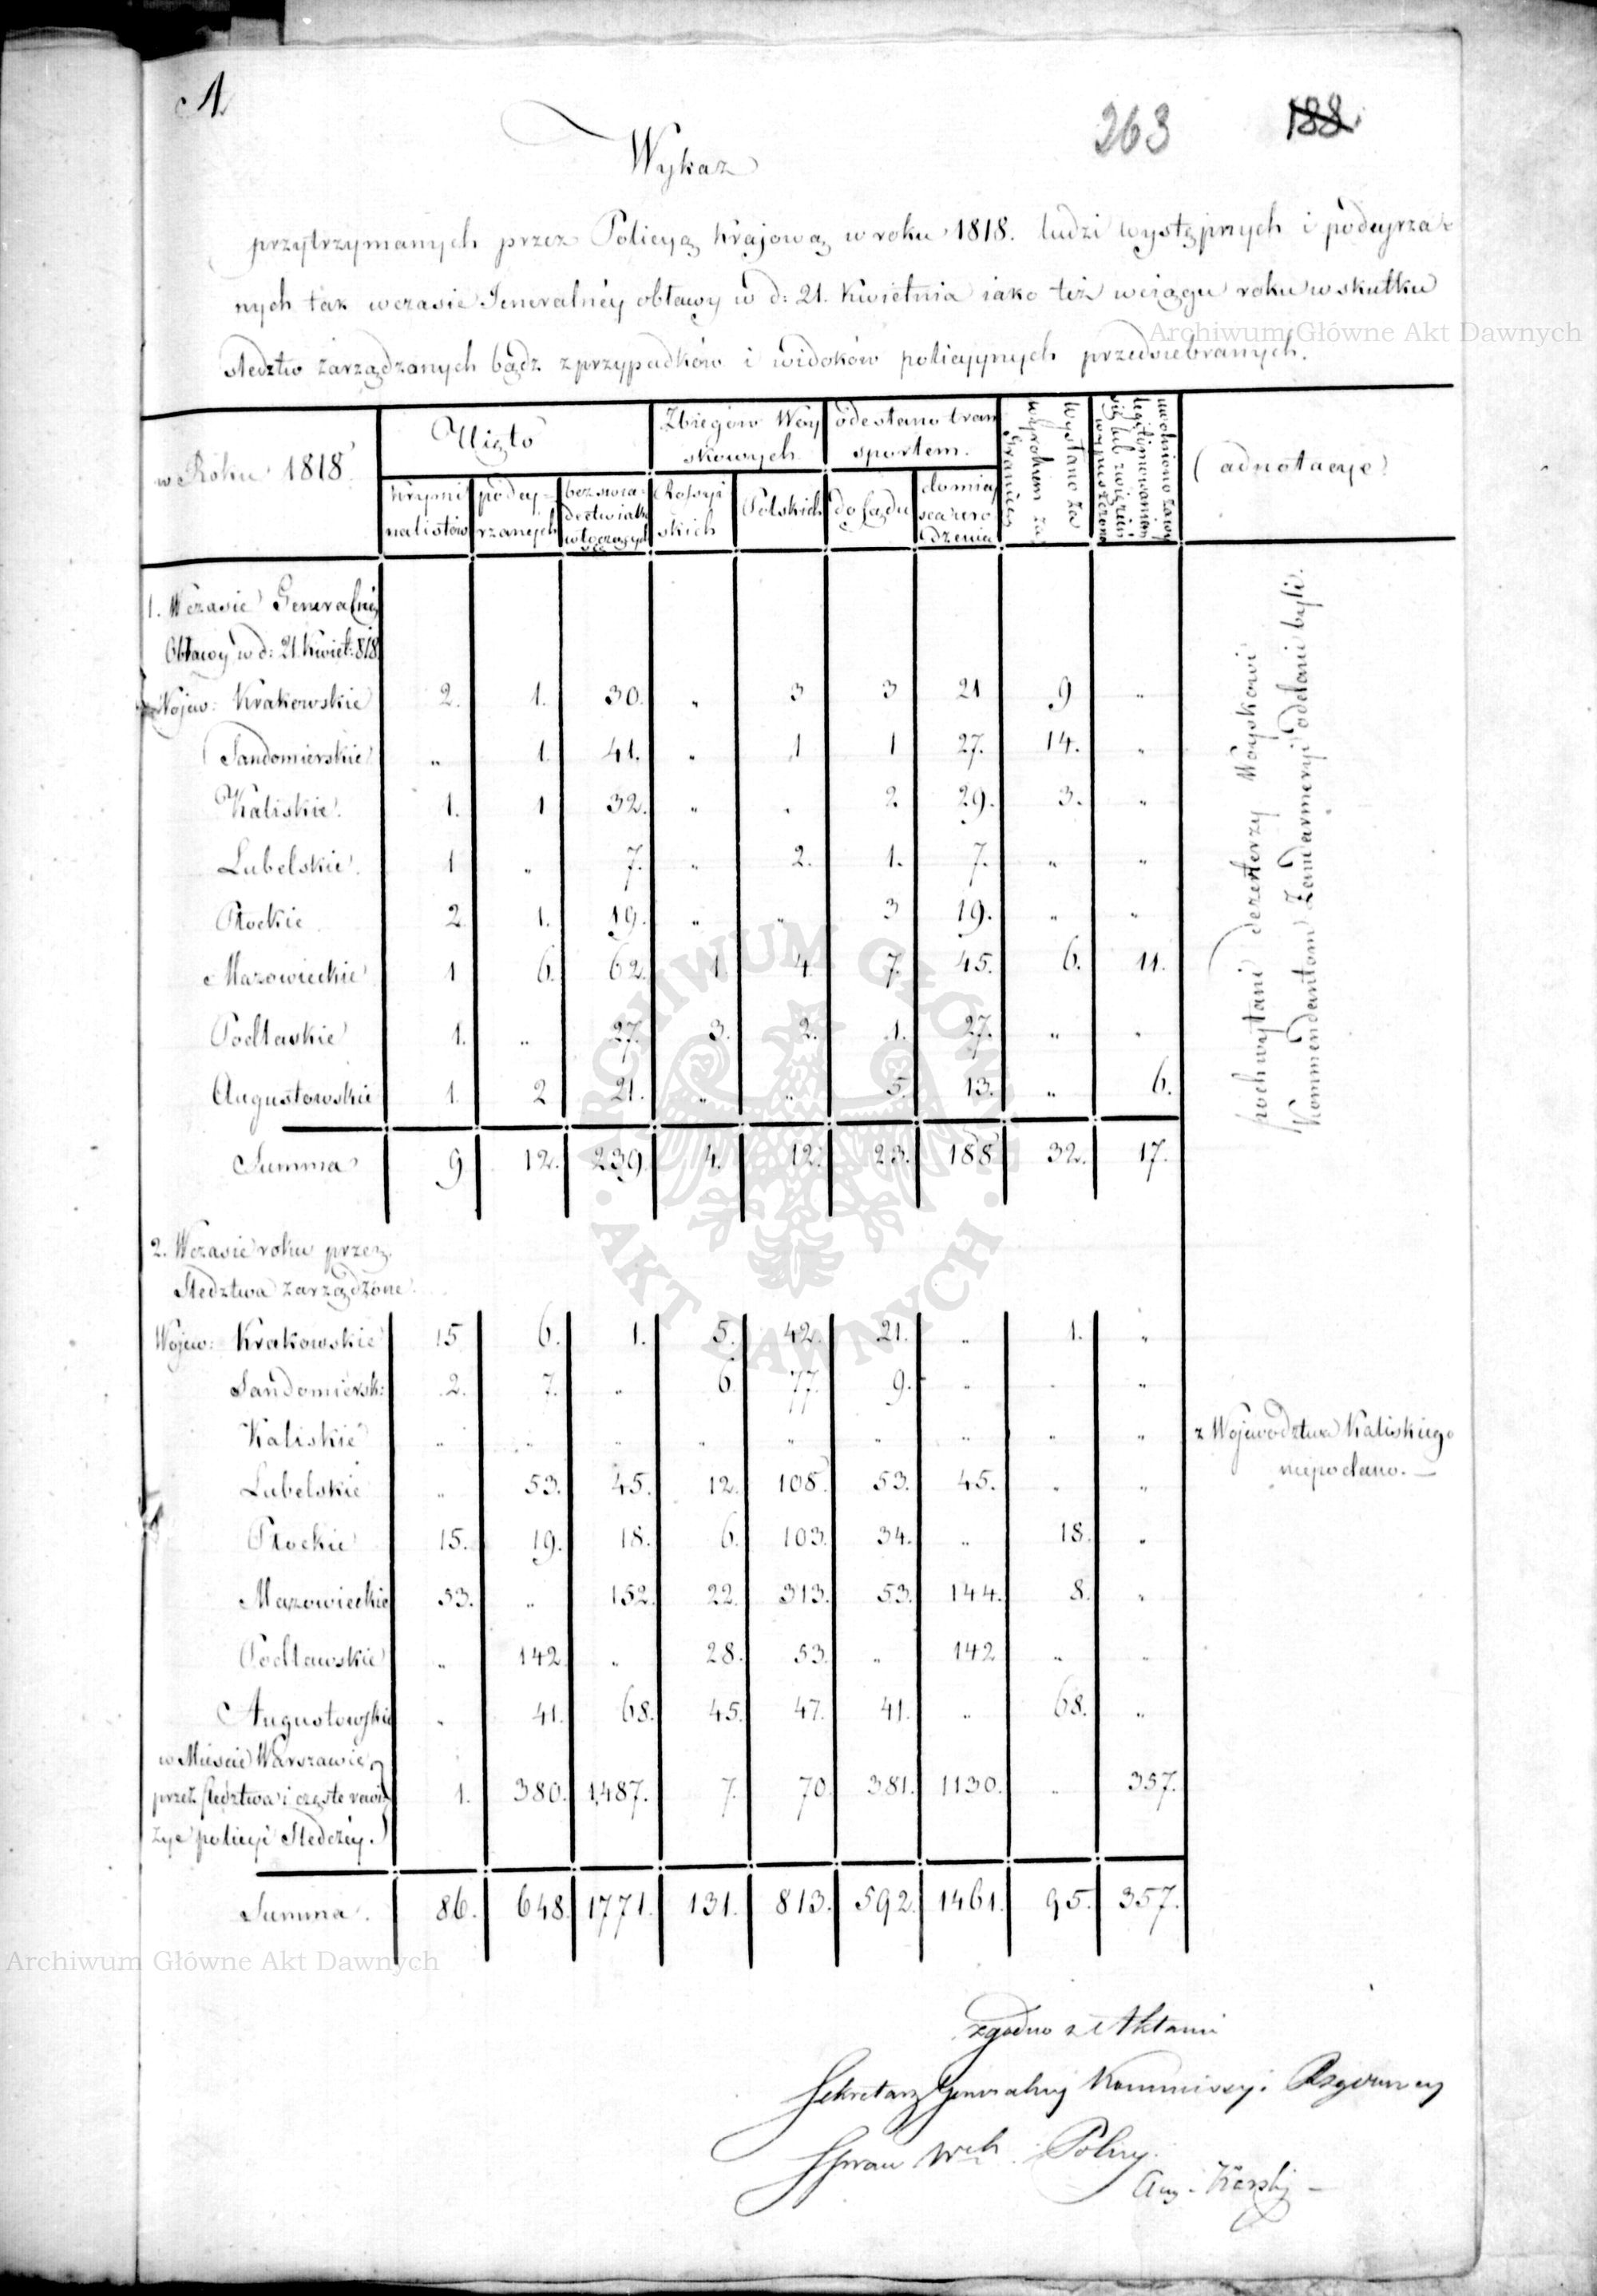 A
263
188
Wykaz
przytrzymanych przez Policyą Krajową w roku 1818. ludzi występnych i podeyrza-
nych tak w czasie Jeneralnéy obławy w d: 21. Kwietnia iako też w ciągu roku w skutku
śledztw zarządzanych bądź z przypadków i widoków policyynych przedsiebranych.
w Roku 1818. | Uięto | Zbiegów Woy skowych | odesłano tran sportem. | wysłano za wyrokiem za granicę | uwolniono za wy legitimowaniem się lub z więzień wypuszczono | adnotacye
krymi nalistów | podey- rzanych | bez swia- dectw iako włóczęgów | Rossyi skich | Polskich | do Sądu | do miey sca uro dzenia
1. W czasie Generalnéy
Obławy w d: 21. Kwiet: 818.
Wojew: Krakowskie 2. 1. 30. „ 3 3 21 9 „
Sandomierskie „ 1. 41. „ 1 1 27. 14. „
Kaliskie. 1. 1 32. „ „ 2. 29. 3. „
Lubelskie. 1 „ 7. „ 2. 1. 7. „ „
Płockie 2 1. 19. „ „ 3 19. „ „
Mazowieckie 1 6. 62. 1. 4. 7. 45. 6. 11.
Podlaskie 1. „ 27. 3. 2. 1. 27. „ „
Augustowskie 1. 2 21. „ „ 5. 13. „ 6.
Summa 9 12. 239. 4. 12. 23. 188 32. 17.
pochwytani dezerterzy Woyskowi
Kommendantom Żandarmeryi oddani byli.
2. W czasie roku przez
Śledztwa zarządzone.
Wojew: Krakowskie 15 6. 1. 5. 42. 21. „ 1. „
Sandomiersk: 2. 7. „ 6. 77. 9. „ „ „
Kaliskie „ „ „ „ „ „ „ „ „ z Województwa Kaliskiego
niepodano. —
Lubelskie „ 53. 45. 12. 108. 53. 45. „ „
Płockie 15. 19. 18. 6. 103. 34. „ 18. „
Mazowieckie 53. „ 152. 22. 313. 53. 144. 8. „
Podlawskie „ 142. „ 28. 53. „ 142 „ „
Augustowskie „ 41. 68. 45. 47. 41. „ 68. „
w Mieście Warszawie
przez śledztwa i częste rewi-
zye policyi Śledczéy. 1. 380. 1,487. 7. 70. 381. 1130. „ 357.
Summa. 86. 648. 1771. 131. 813. 592. 1461. 95. 357.
zgodno z Aktami
Sekretarz Generalny Kommissyi Rządowey
Spraw Wch i Policyi
Archiwum Główne Akt Dawnych
ARCHIWUM GŁÓWNE
· AKT DAWNYCH ·
Archiwum Główne Akt Dawnych